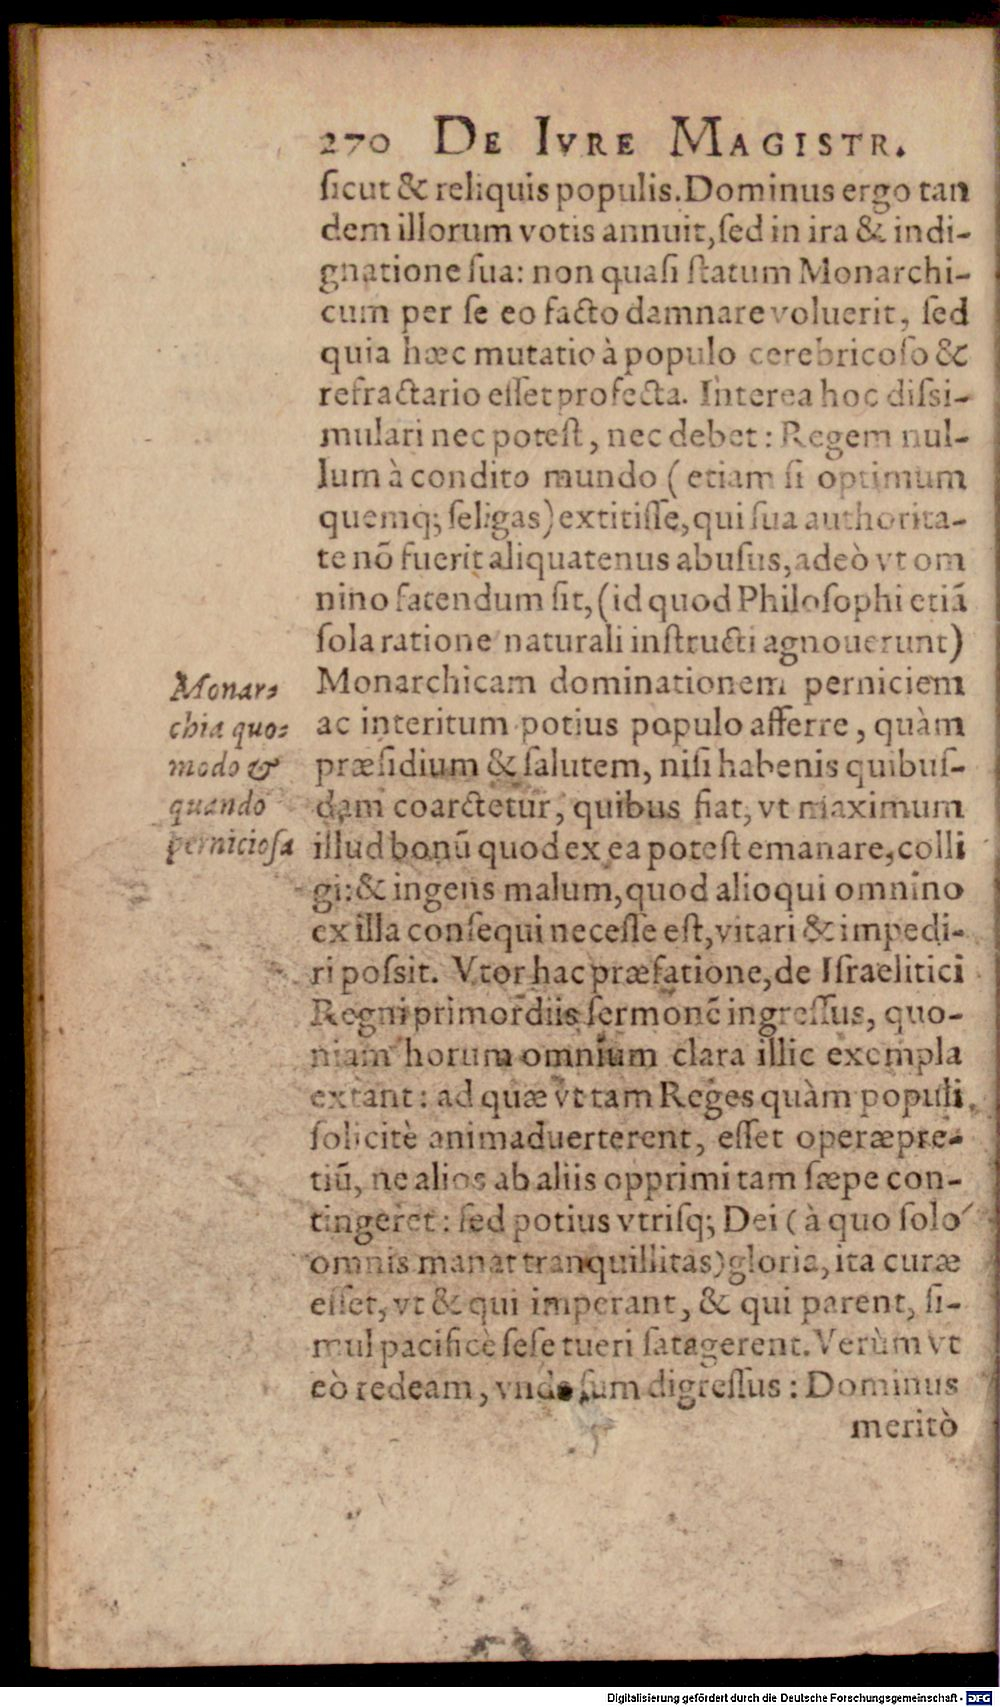 270 DE IVRE MAGISTR.
ſicut & reliquis populis. Dominus ergo tan
dem illorum votis annuit, ſed in ira & indi-
gnatione ſua: non quaſi ſtatum Monarchi-
cum per ſe eo facto damnare voluerit, ſed
quia hæc mutatio à populo cerebricoſo &
refractario eſſet profecta. Interea hoc diſsi-
mulari nec poteſt, nec debet: Regem nul-
lum à condito mundo (etiam ſi optimum
quemq; ſeligas) extitiſſe, qui ſua authorita-
te nō fuerit aliquatenus abuſus, adeò vt om
nino fatendum ſit, (id quod Philoſophi etiā
ſola ratione naturali inſtructi agnouerunt)
Monarchicam dominationem perniciem
ac interitum potius populo afferre, quàm
præſidium & ſalutem, niſi habenis quibuſ-
dam coarctetur, quibus fiat, vt maximum
illud bonū quod ex ea poteſt emanare, colli
gi: & ingens malum, quod alioqui omnino
ex illa conſequi neceſſe eſt, vitari & impedi-
ri poſsit. Vtor hac præfatione, de Iſraelitici
Regni primordiis ſermonē ingreſſus, quo-
niam horum omnium clara illic exempla
extant: ad quæ vt tam Reges quàm populi
ſolicitè animaduerterent, eſſet operæpre-
tiū, ne alios ab aliis opprimi tam ſæpe con-
tingeret: ſed potius vtriſq; Dei (à quo ſolo
omnis manat tranquillitas) gloria, ita curæ
eſſet, vt & qui imperant, & qui parent, ſi-
mul pacificè ſeſe tueri ſatagerent. Verùm vt
eò redeam, vnde ſum digreſſus: Dominus
meritò
Monar-
chia quo-
modo &
quando
pernicioſa
Digitalisierung gefördert durch die Deutsche Forschungsgemeinschaft - DFG